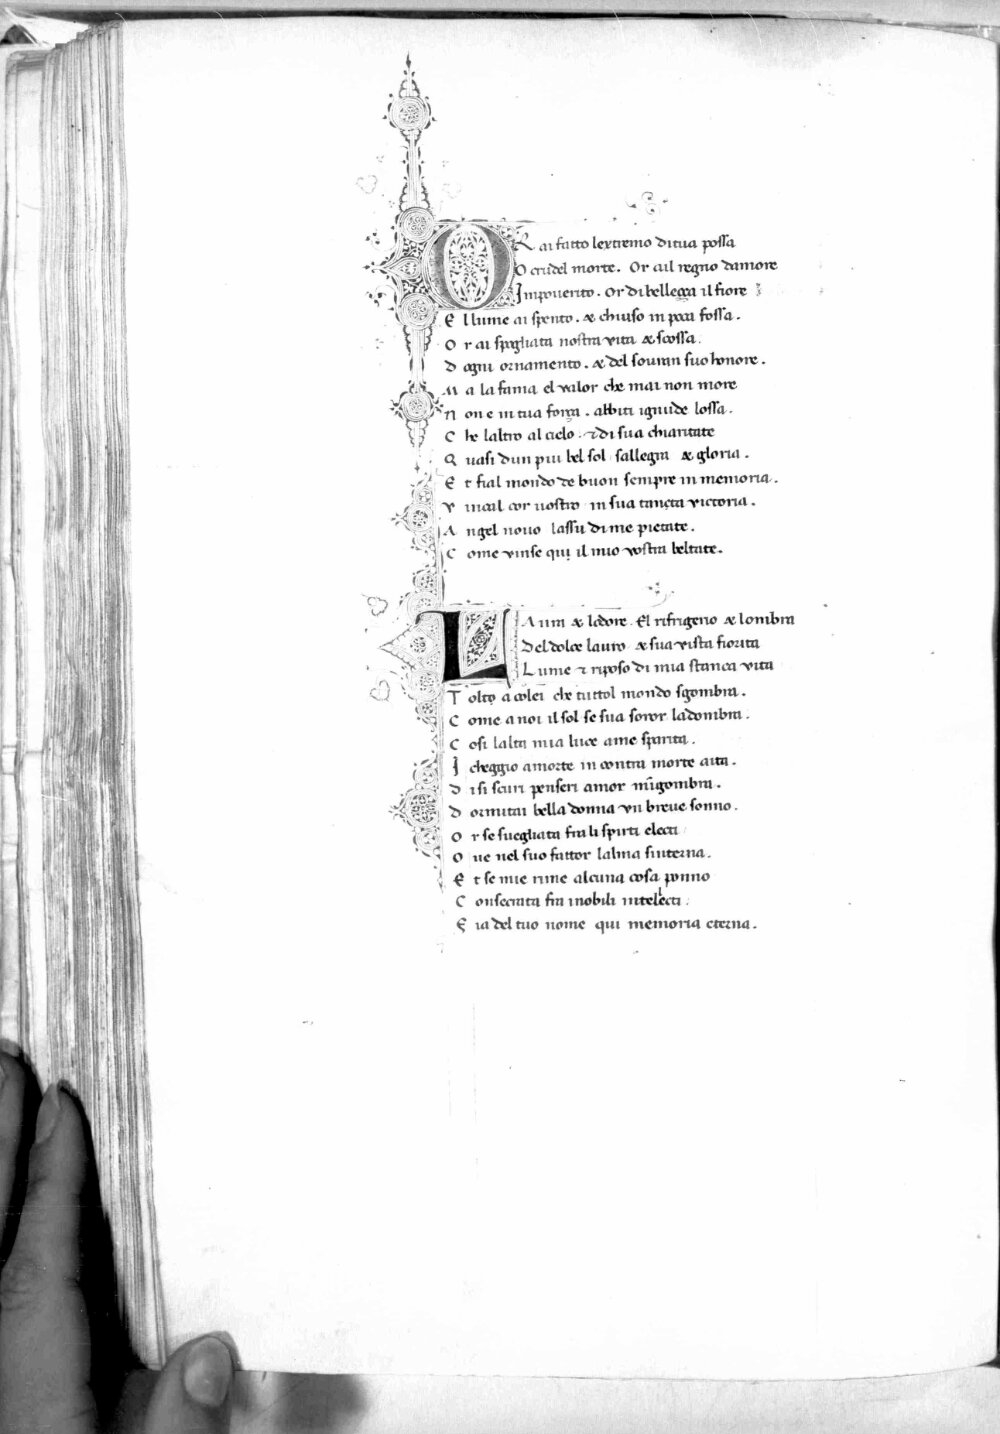 OR ai fatto lextremo di tua possa
O crudel morte. Or ail regno damore
Impouerito. Or di bellezza il fiore
E l lume ai spento. & chiuso in poca fossa.
O r ai spogliata nostra vita & scossa.
D ogni ornamento. & del souran suo honore.
M a la fama el valor che mai non more
N on e in tua forza. abbiti ignude lossa.
C he laltro al cielo. & di sua chiaritate
Q uasi dun piu bel sol sallegra & gloria.
E t fial mondo de buon sempre in memoria.
V incail cor uostro in sua tancta victoria.
A ngel nouo lassu di me pietate.
C ome vinse qui il mio vostra beltate.
LAura & lodore. El rifrigerio & lombra
Del dolce lauro & sua vista fiorita
Lume & riposo di mia stanca vita
T olto a colei che tuttol mondo sgombra.
C ome a noi il sol se sua soror ladombra.
C osi lalta mia luce ame sparita.
I cheggio amorte in contra morte aita.
D i si scuri penseri amor m̄igombra.
D ormitai bella donna vn breue sonno.
O r se suegliata fra li spirti electi
O ue nel suo fattor lalma sinterna.
E t se mie rime alcuna cosa ponno
C onsecrata fra inobili intelecti.
E ia del tuo nome qui memoria eterna.